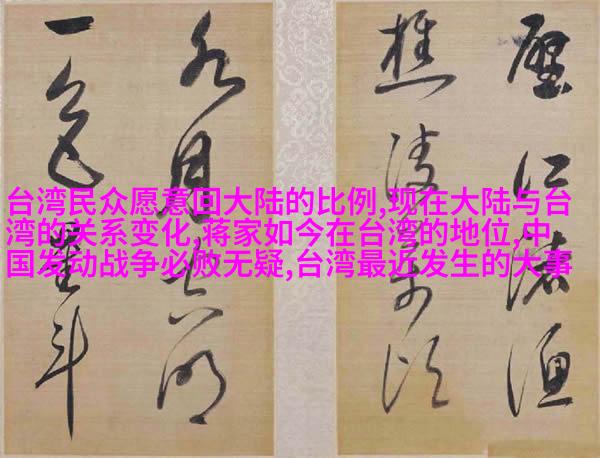 台湾民众愿意回大陆的比例,现在大陆与台
湾的关系变化,蒋家如今在台湾的地位,中
国发动战争必败无疑,台湾最近发生的大事
江渚渔
樵凌万顷
水月明
一色斗